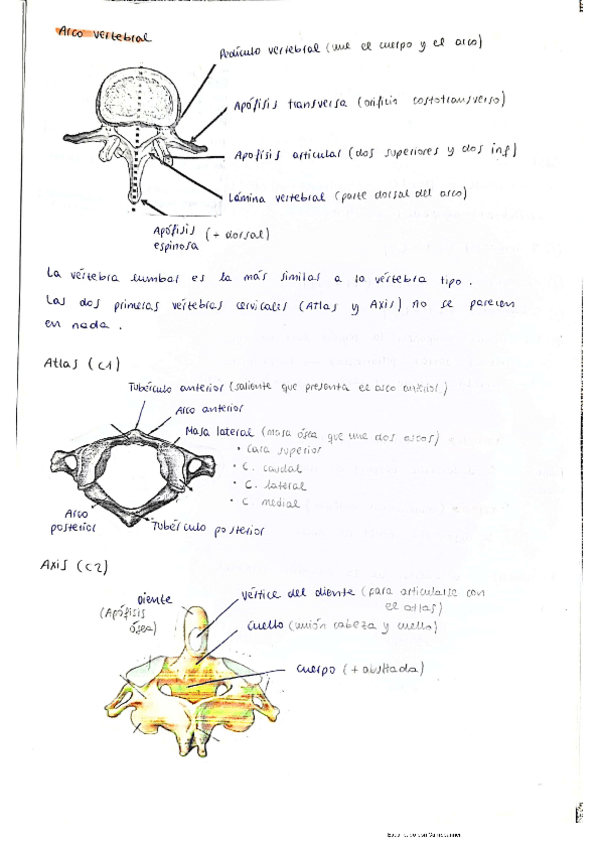 Arco vertebral
Pedículo vertebral (une el cuerpo y el arco)
Apófisis transversa (orificio costotransverso)
Apófisis articular (dos superiores y dos inf)
Lámina vertebral (parte dorsal del arco)
Apófisis (+ dorsal)
espinosa
La vértebra lumbar es la más similar a la vértebra tipo.
Las dos primeras vértebras cervicales (Atlas y Axis) no se parecen
en nada.
Atlas (C1)
Tubérculo anterior (saliente que presenta el arco anterior)
Arco anterior
Masa lateral (masa ósea que une dos arcos)
• Cara superior
• C. caudal
• C. lateral
• C medial
Arco
posterior
Tubérculo posterior
Axis (C2)
Diente
(Apófisis
ósea)
Vértice del diente (para articularse con
el atlas)
Cuello (unión cabeza y cuello)
Cuerpo (+ abultada)